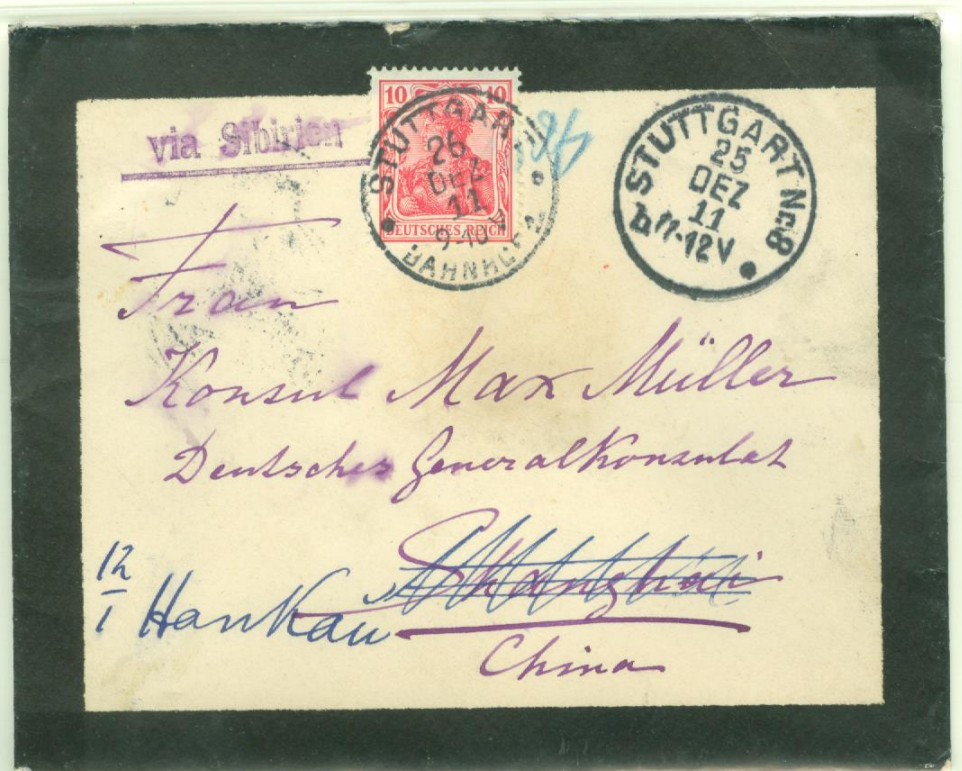 via Sibirien
10 10
DEUTSCHES REICH
STUTTGART
26
DEZ
11
BAHNHOF 2
STUTTGART Nr. 8
25
DEZ
11
b 11-12 V
Frau
Konsul Max Müller
Deutsches Generalkonsulat
Shanghai
12/1 Hankau
China